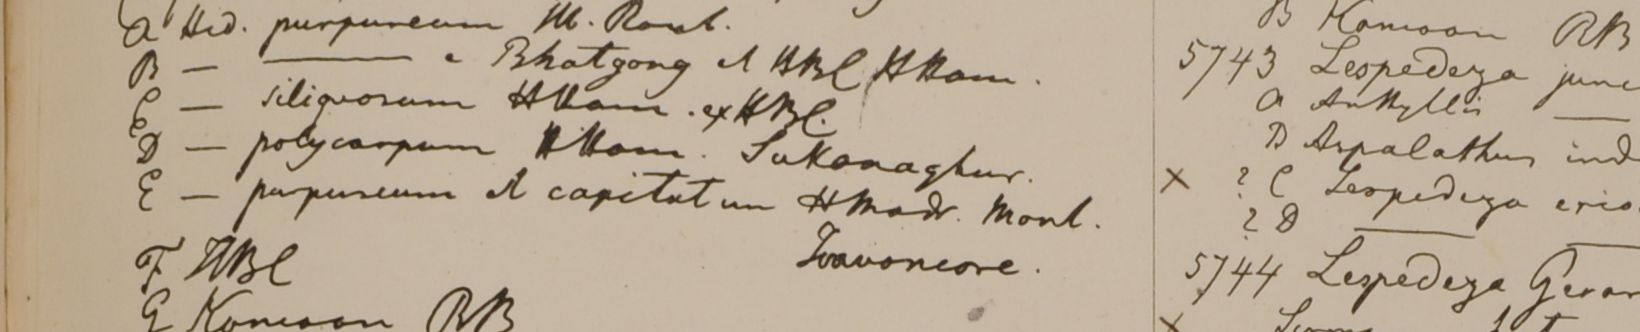 A Hed. purpureum M. Roxb.
B — ——— e Bhatgong et HBC HHam.
C — siliquosum HHam. ex HBC.
D — polycarpum HHam. Sukanaghur.
E — purpureum et capitatum HMadr. Mont. Travancore.
F HBC
G Kamaon RB
B Kamaon RB
5743 Lespedeza junc
A Anthyllis ——
B Aspalathus ind
× ? C Lespedeza erio
? D ——— ——
5744 Lespedeza Gerar
×